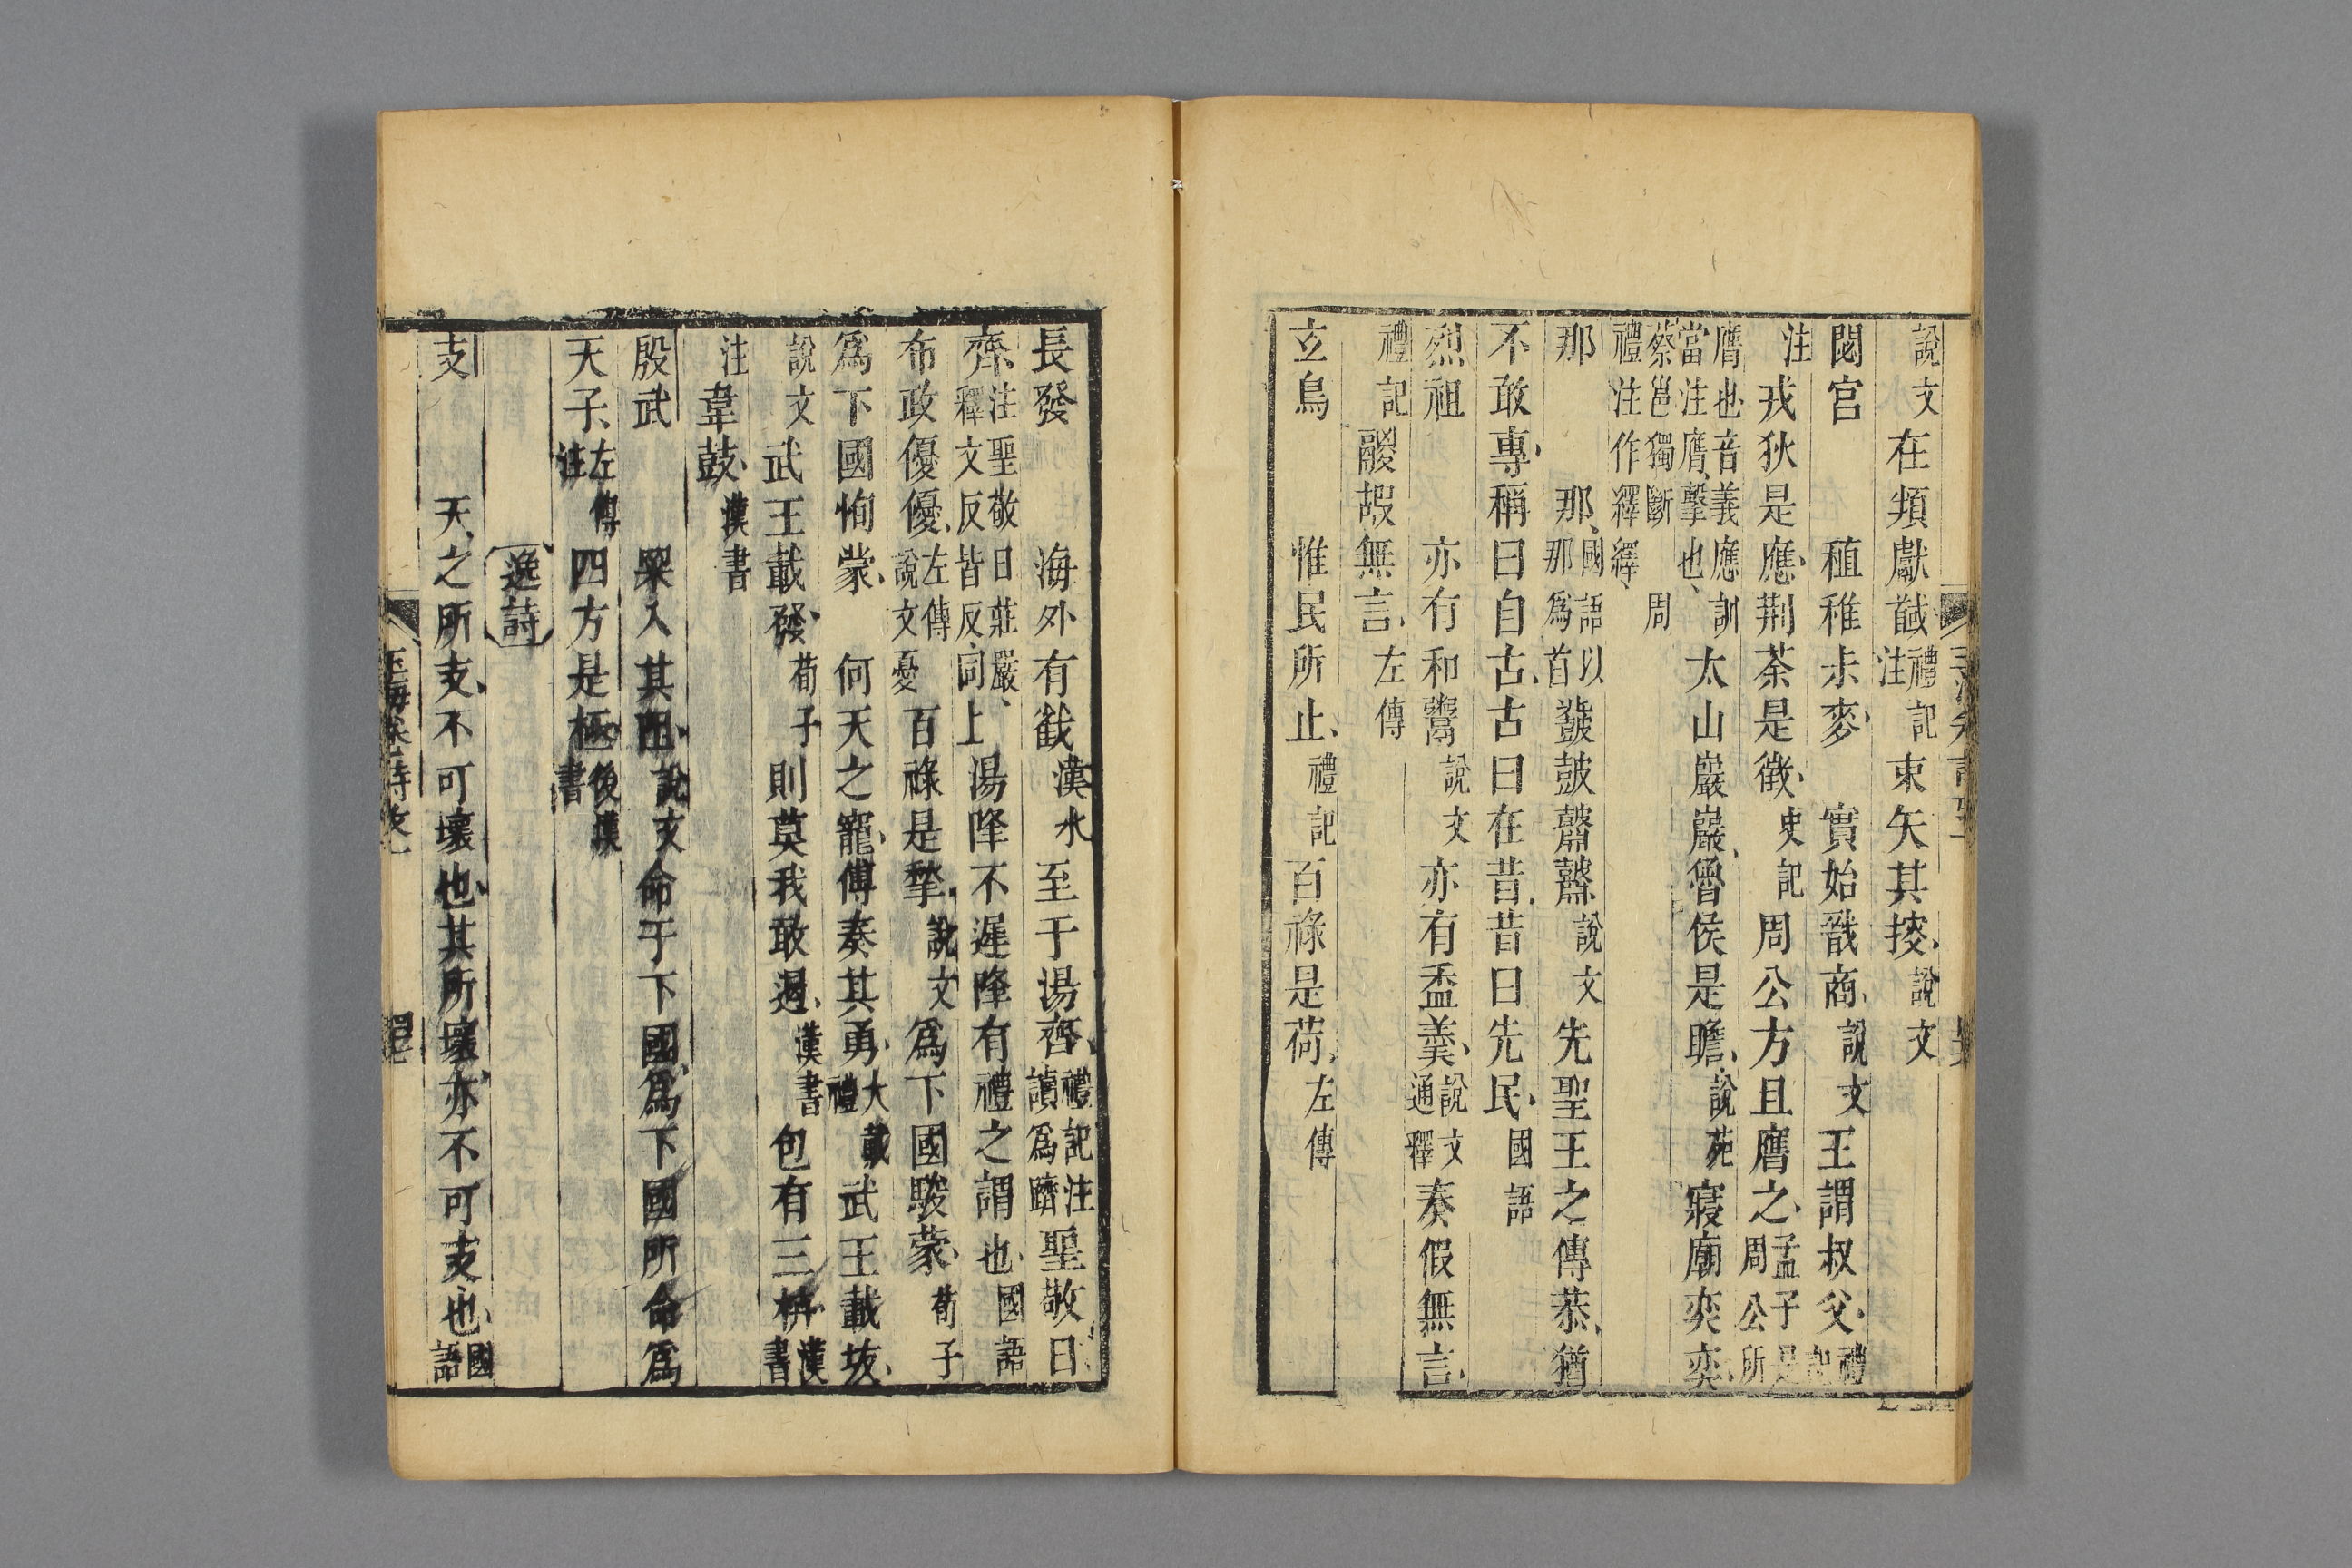 說文在頖獻馘禮記注束矢其摉說文
閟宮　稙稚尗麥　實始戩商說文王謂叔父禮記
注戎狄是應荆荼是徵史記周公方且膺之孟子周公所
膺也音義應訓當注膺擊也太山巖巖魯侯是瞻說苑寢廟奕奕
蔡邕獨斷周禮注作繹繹
那　那國語以那爲首鼗鼓鼘鼘說文先聖王之傳恭猶
不敢專稱曰自古古曰在昔昔曰先民國語
烈祖　亦有和鬻說文亦有盉羹說文通釋奏假無言
禮記鬷嘏無言左傳
玄鳥　惟民所止禮記百祿是荷左傳
長發　海外有㦸漢水至于湯齊禮記注讀爲躋聖敬日
齊注聖敬日莊嚴釋文反皆反同上湯降不遲降有禮之謂也國語
布政優優左傳說文憂百祿是揫說文爲下國駿蒙荀子
爲下國恂蒙　何天之寵傅奏其勇大戴禮武王載坺
說文武王載發荀子則莫我敢遏漢書包有三枿漢書
注韋鼓漢書
殷武　冞入其阻說文命于下國爲下國所命爲
天子左傳注四方是極後漢書
逸詩
支　天之所支不可壞也其所壞亦不可支也國語
玉海卷　詩攷